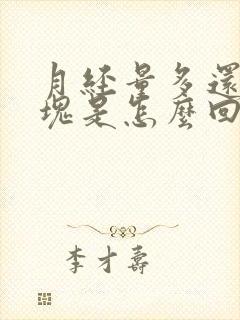 月經量多還
塊是怎麼回
李才壽